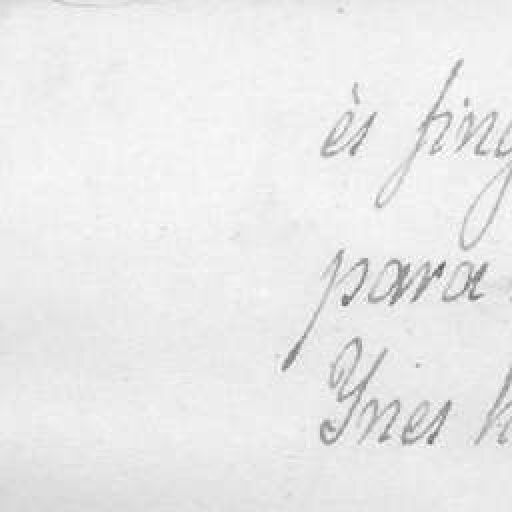 ès fing
para
Ynes h